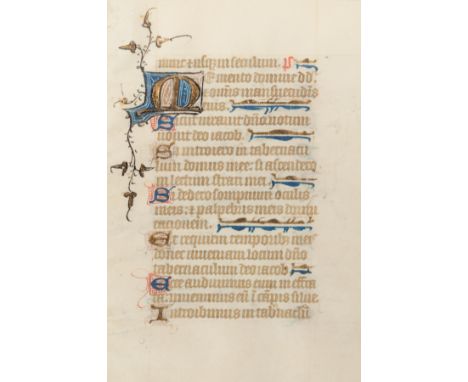 nunc et usq; in seculum. ps
Memento domine dd
et omnis mansuetudinis
eius.
Sicut iuravit dño votum
vovit deo iacob.
Si introiero in tabernacu
lum domus mee: si ascendero
in lectum strati mei.
Si dedero sompnum oculis
meis: et palpebris meis dormi
tacionem.
Et requiem temporib; meis
donec inveniam locum dño
tabernaculum deo iacob.
Ecce audivimus eum in effra
ta: invenimus eũ ĩ cãpis silve
Introibimus in tab'naculũ